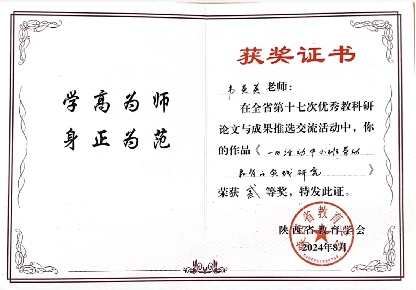 学高为师
身正为范
获奖证书
老师:
在全省第十七次优秀教科研
论文与成果推选交流活动中,你
的作品《一日活动中小班劳动
教育的实践研究》
荣获 等奖,特发此证。
陕西省教育学会
2024年8月